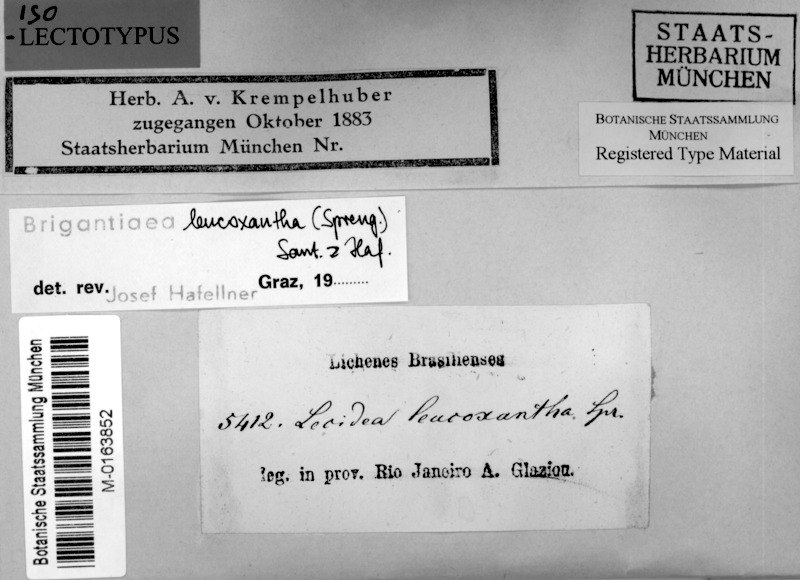 ISO
-LECTOTYPUS
STAATS-
HERBARIUM
MÜNCHEN
Herb. A. v. Krempelhuber
zugegangen Oktober 1883
Staatsherbarium München Nr.
BOTANISCHE STAATSSAMMLUNG
MÜNCHEN
Registered Type Material
Brigantiaea leucoxantha (Spreng.)
Sant. & Haf.
det. rev. Josef Hafellner Graz, 19.........
Botanische Staatssammlung München
M-0163852
Lichenes Brasilienses
5412. Lecidea leucoxantha Spr.
leg. in prov. Rio Janeiro A. Glaziou.